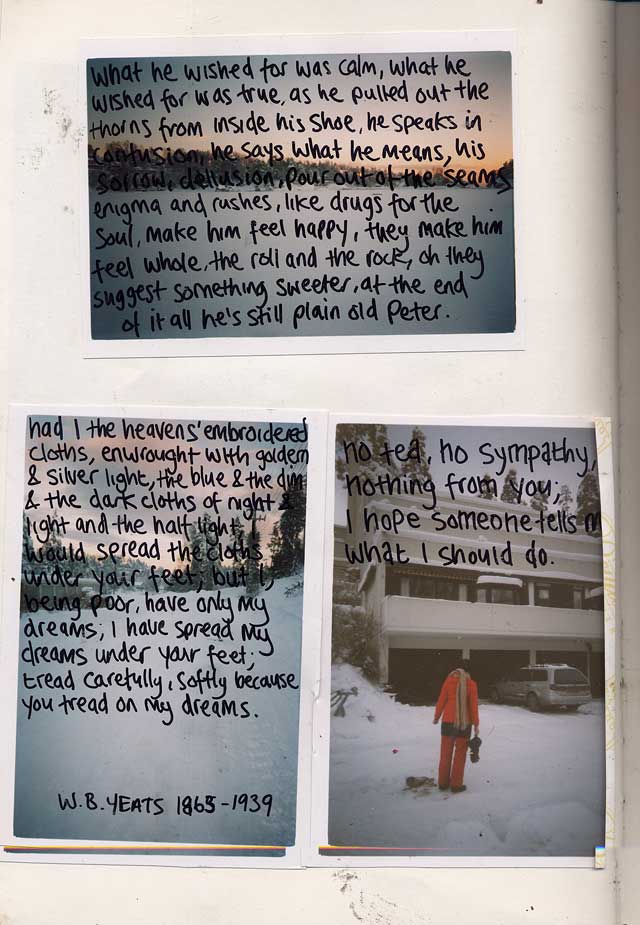 What he wished for was calm, what he
wished for was true, as he pulled out the
thorns from inside his shoe, he speaks in
confusion, he says what he means, his
sorrow, dellusion, pour out of the seams
enigma and rushes, like drugs for the
soul, make him feel happy, they make him
feel whole, the roll and the rock, oh they
suggest something sweeter, at the end
of it all he's still plain old Peter.
had I the heavens' embroidered
cloths, enwrought with goldern
& silver light, the blue & the dim
& the dark cloths of night &
light and the half light
would spread the cloths
under your feet; but I,
being poor, have only my
dreams; I have spread my
dreams under your feet;
tread carefully, softly because
you tread on my dreams.
W.B. YEATS 1865-1939
no tea, no sympathy,
nothing from you;
I hope someone tells m
what I should do.